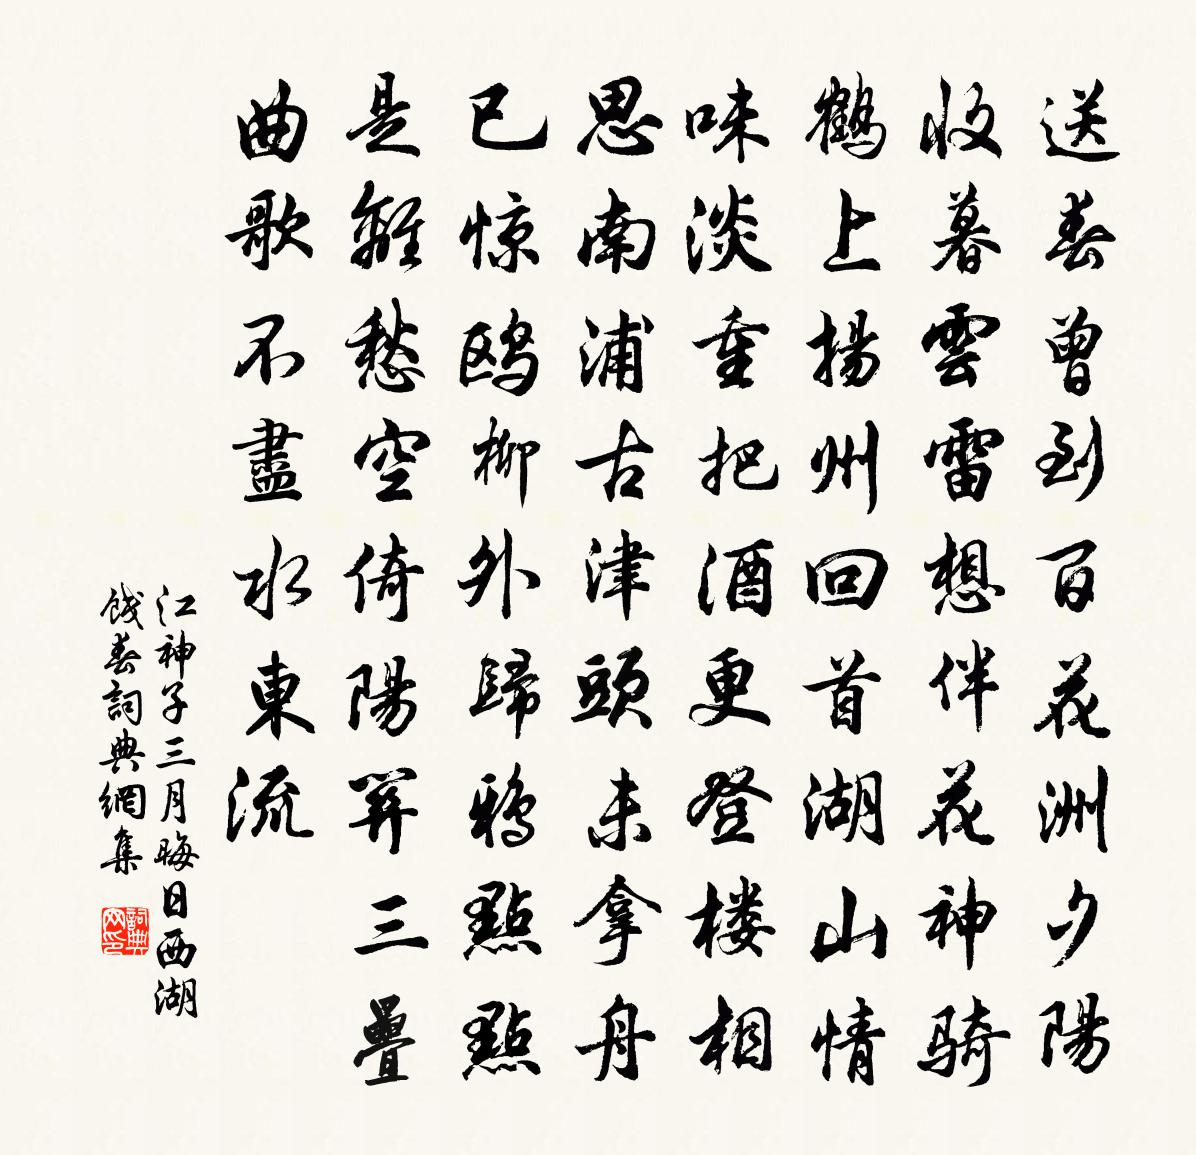 送春曾到百花洲夕陽
收暮雲雷想伴花神骑
鶴上揚州回首湖山情
味淡重把酒更登楼相
思南浦古津頭未拿舟
已惊鸥柳外歸鴉點點
是離愁空倚陽關三疊
曲歌不盡水東流
江神子三月晦日西湖
餞春詞典網集
詞典
网印